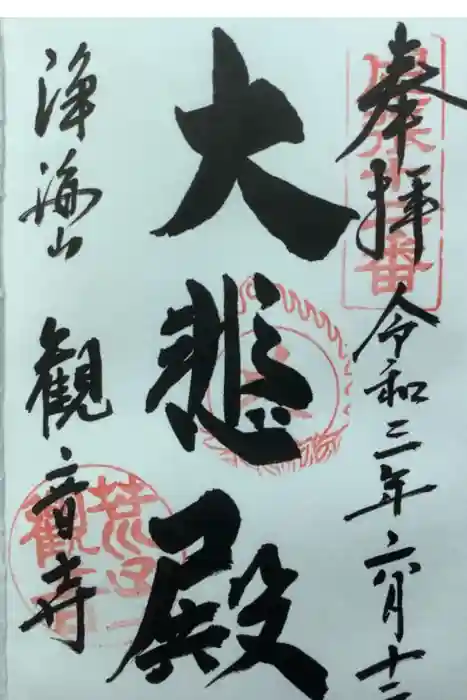 奉拝
令和三年六月十二
大悲殿
浄海山 観音寺